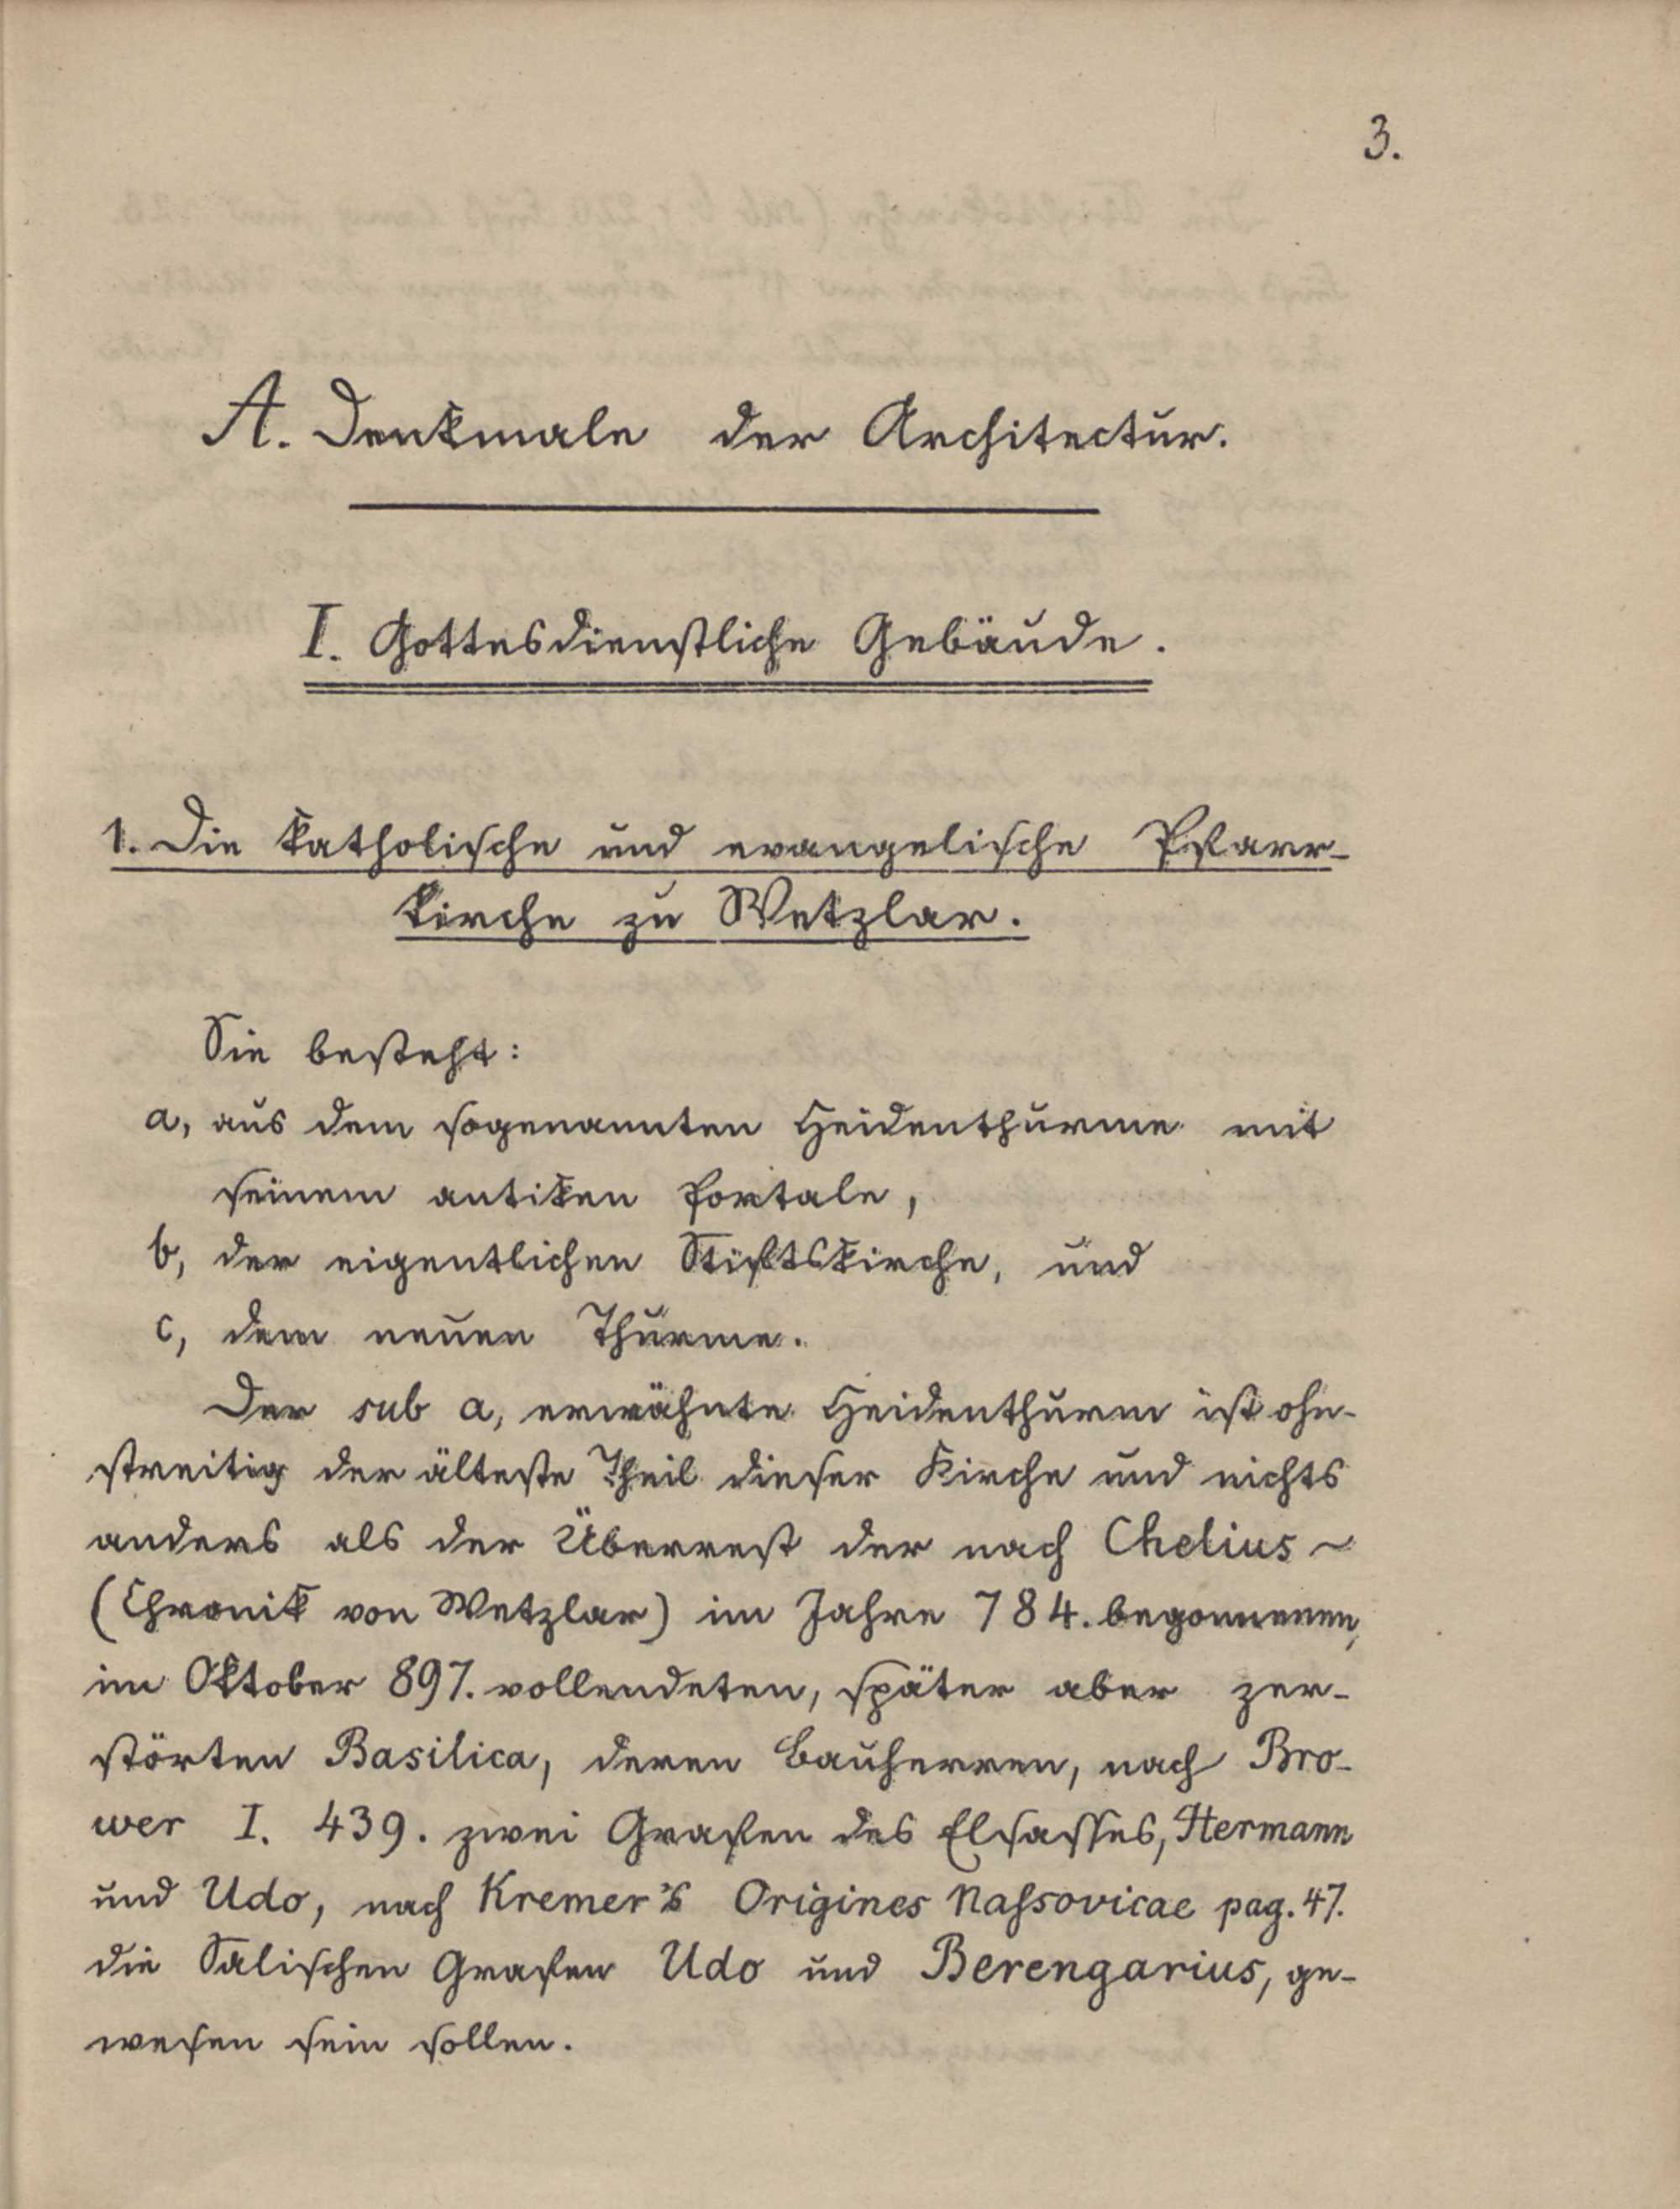 3.
A. Denkmale der Architectur.
I. Gottesdienstliche Gebäude.
1. Die katholische und evangelische Pfarr-
kirche zu Wetzlar.
Sie besteht:
a, aus dem sogenannten Heidenthurme mit
seinem antiken Portale,
b, der eigentlichen Stiftskirche, und
c, dem neuen Thurme.
Der sub a, erwähnte Heidenthurm ist ohn-
streitig der älteste Theil dieser Kirche und nichts
anders als der Überrest der nach Chelius ~
(Chronik von Wetzlar) im Jahre 784. begonnenen,
im Oktober 897. vollendeten, später aber zer-
störten Basilica, deren Bauherren, nach Bro-
wer I. 439. zwei Grafen des Elsasses, Hermann
und Udo, nach Kremer's Origines Naſsovicae pag. 47.
die Salischen Grafen Udo und Berengarius, ge-
wesen sein sollen.